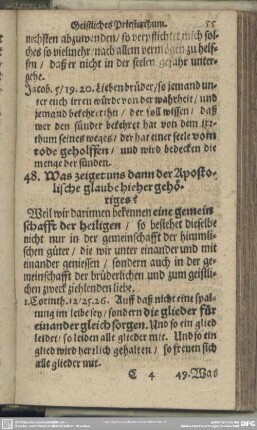 Geistliches Priesterthum. 55
nechsten abzuwenden / so verpflichtet mich sol-
ches so vielmehr / nach allem vermögen zu helf-
fen / daß er nicht in der seelen gefahr unter-
gehe.
Jacob. 5/19.20. Lieben brüder / so jemand un-
ter euch irren würde von der wahrheit / und
jemand bekehret ihn / der soll wissen / daß
wer den sünder bekehret hat von dem irr-
thum seines weges / der hat einer seele vom
tode geholffen / und wird bedecken die
menge der sünden.
48. Was zeiget uns dann der Aposto-
lische glaube hieher gehö-
riges?
Weil wir darinnen bekennen eine gemein
schafft der heiligen / so bestehet dieselbe
nicht nur in der gemeinschafft der himmli-
schen güter / die wir unter einander und mit
einander geniessen / sondern auch in der ge-
meinschafft der brüderlichen und zum geistli-
chen zweck ziehlenden liebe.
1. Corinth. 12/25.26. Auff daß nicht eine spal-
tung im leibe sey / sondern die glieder für
einander gleich sorgen. Und so ein glied
leidet / so leiden alle glieder mit. Und so ein
glied wird herrlich gehalten / so freuen sich
alle glieder mit.
C 4 49. Was
DFG